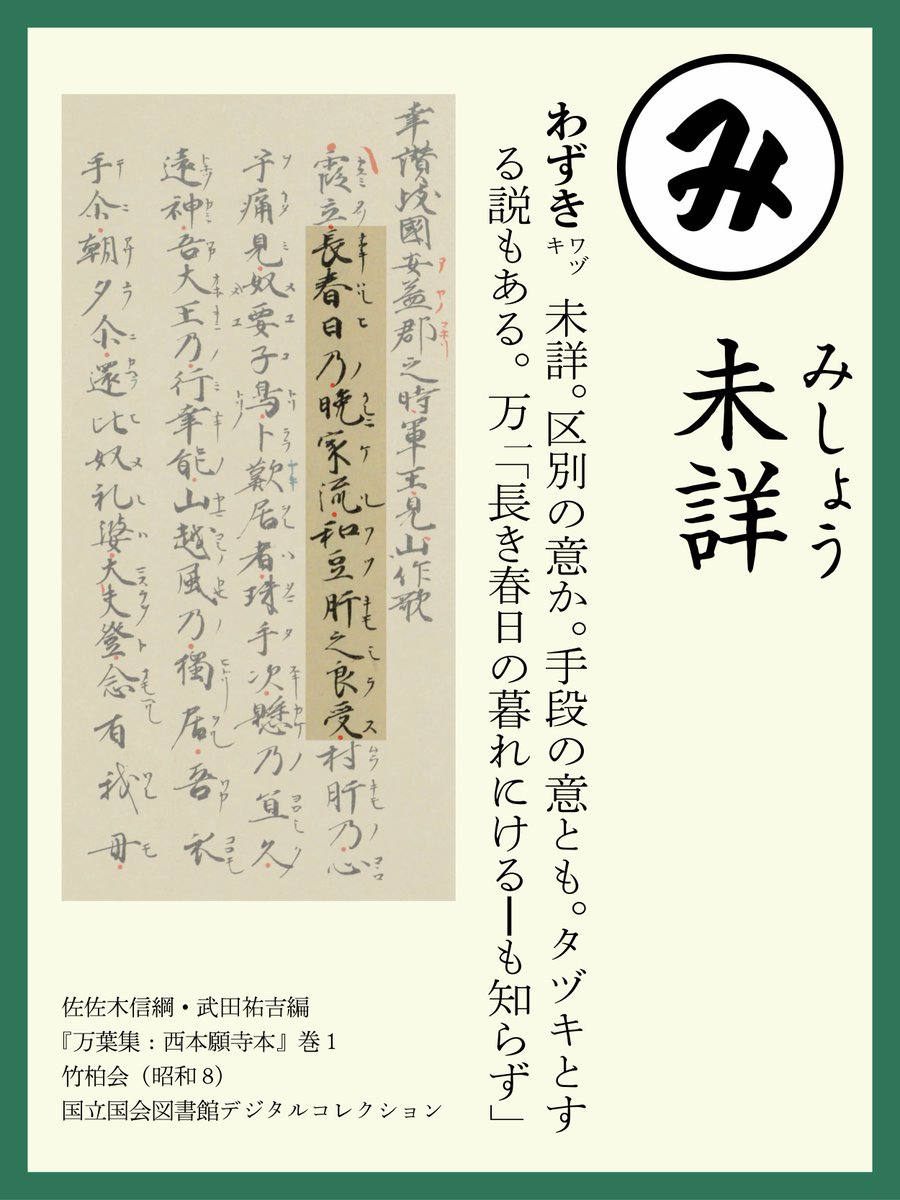 み
みしょう
未詳
わずき ワヅキ 未詳。区別の意か。手段の意とも。タヅキとす
る説もある。万一「長き春日の暮れにける―も知らず」
幸讃岐國安益郡之時軍王見山作歌
霞立長春日乃晩家流和豆肝之良受村肝乃心
乎痛見奴要子鳥卜歎居者珠手次懸乃宜久
遠神吾大王乃行幸能山越風乃獨居吾衣
手尒朝夕尒還比奴礼婆大夫登念有我母
佐佐木信綱・武田祐吉編
『万葉集:西本願寺本』巻1
竹柏会(昭和8)
国立国会図書館デジタルコレクション